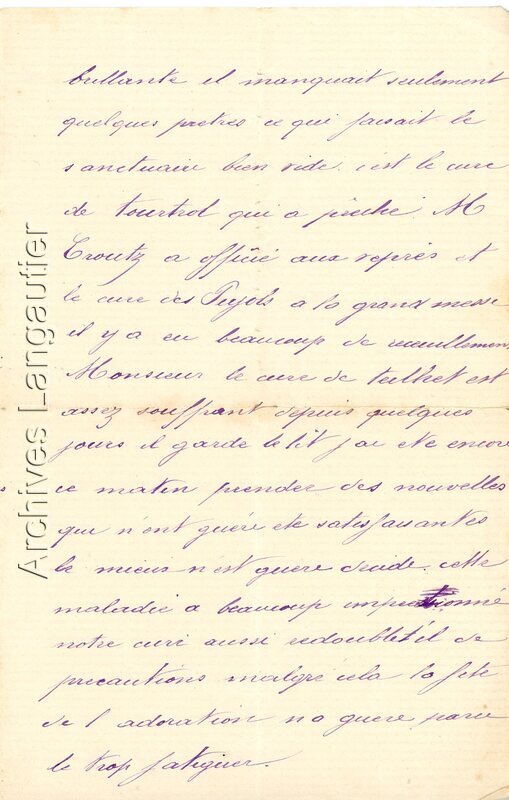 brillante il manquait seulement
quelques pretres ce qui faisait le
sanctuaire bien vide. c'est le cure
de tourtrol qui a prêché. M
Croutz a officié aux vepres et
le cure des Pujols a la grand messe
il y a eu beaucoup de recueillement
Monsieur le cure de teilhet est
assez souffrant depuis quelques
jours il garde le lit j'ai ete encore
ce matin prender des nouvelles
qui n'ont guére ete satisfaisantes
le mieux n'est guere decide. cette
maladie a beaucoup impressionné
notre curé aussi redouble t'il de
precautions malgré cela la fete
de l adoration na guere paru
le trop fatiguer.
Archives Langautier